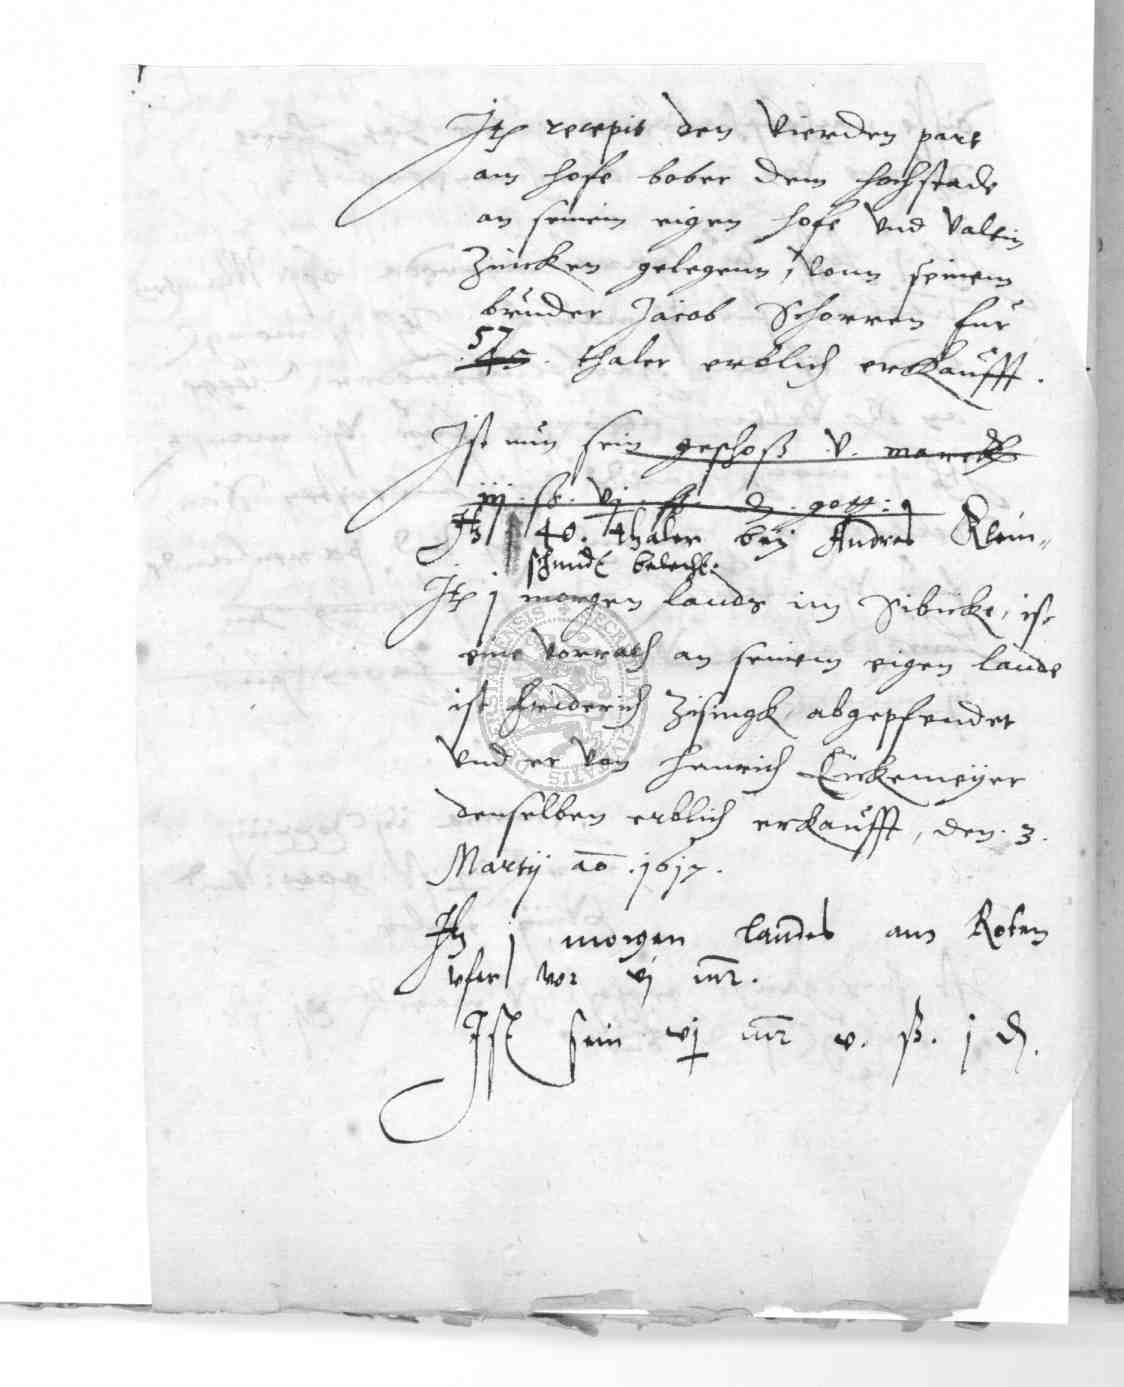 Jtem recepit den Vierden part
am hofe bober dem hochstade
an seinem eigen hofe Vnd Valtin
Zincken gelegenn, Vonn seinem
bruder Jacob Schorren für
57
45. thaler erblich erkaufft.
Ist nun sein geschoß V. marck
iij. ß. vj. d. gott:
Jtem 40. thaler beÿ Andres Klein-
schmidt belecht:
Jtem j morgen lands im Sibicke, ist
eine Vorrath an seinem eigen lande
ist Friderich Zisingk abgepfendet
Vnd er Von Henrich Eickemeÿer
denselben erblich erkaufft, den. 3.
Martij ao. 1617.
Jtem j morgen landes am Roten
vfer vor vj mr.
Ist sein vj mr v. ß. j d.